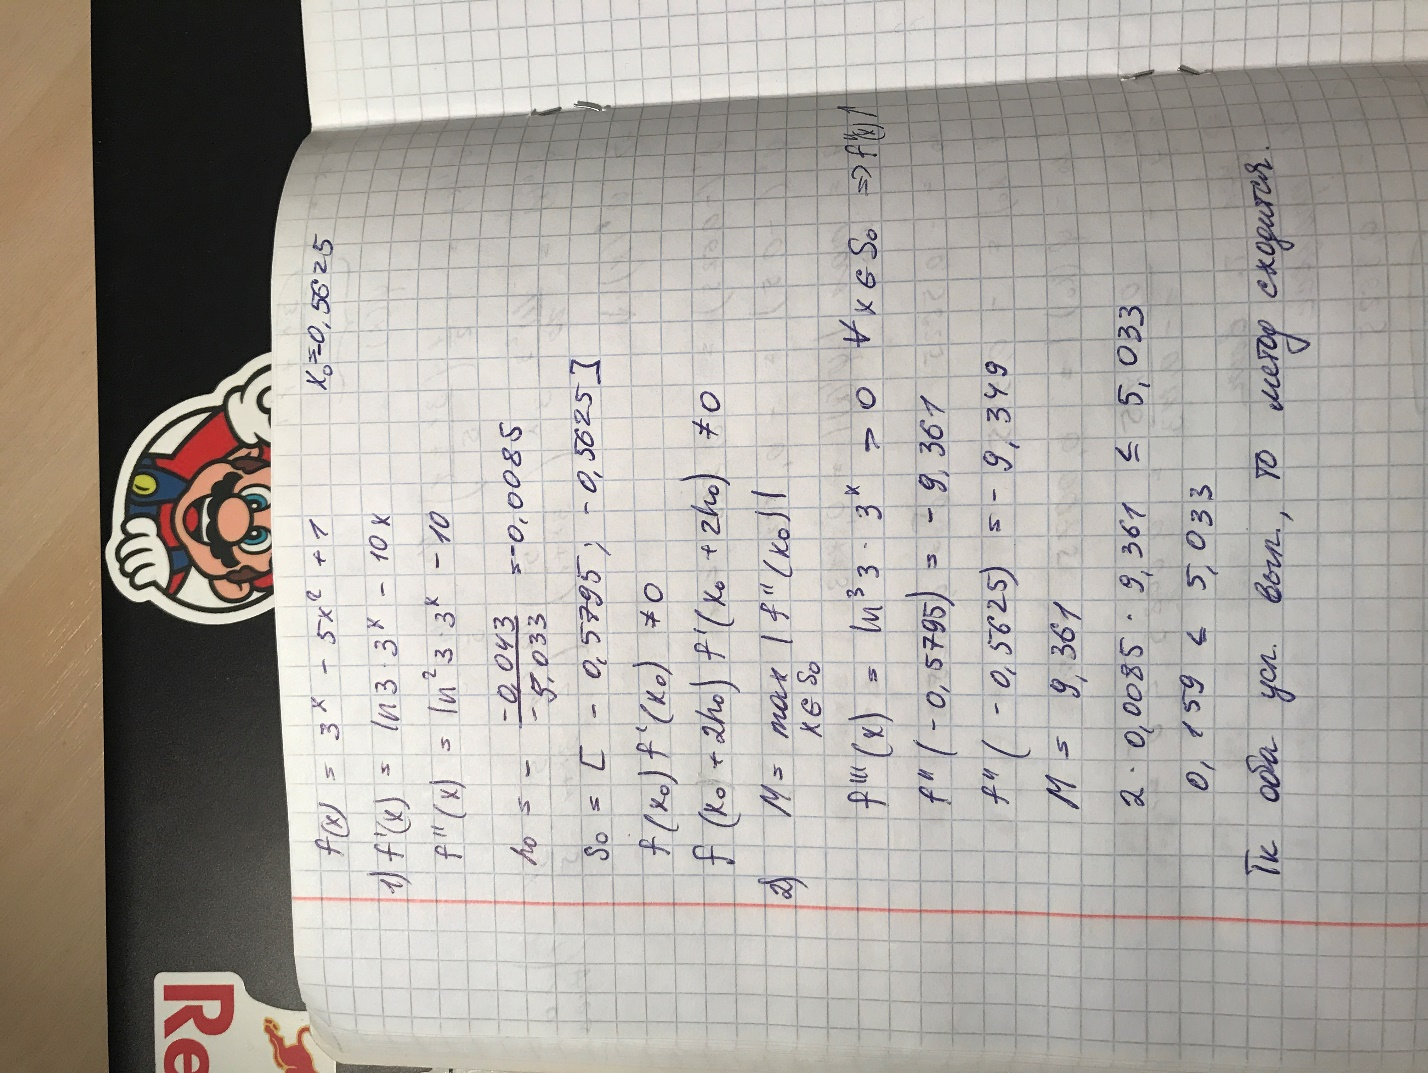 f(x) = 3^x - 5x² + 1    x₀=-0,5625
1) f'(x) = ln3·3^x - 10x
f''(x) = ln²3·3^x - 10
h₀ = - -0,043/-5,033 = -0,0085
S₀ = [ -0,5795; -0,5625]
f(x₀) f'(x₀) ≠0
f(x₀+2h₀) f'(x₀+2h₀) ≠0
2) M = max |f''(x₀)|
x∈S₀
f'''(x) = ln³3·3^x => 0 ∀x∈S₀ => f''(x)↑
f''(-0,5795) = -9,361
f''(-0,5625) = -9,349
M = 9,361
2·0,0085·9,361 ≤ 5,033
0,159 ≤ 5,033
Тк оба усл. вып., то метод сходится.
Re